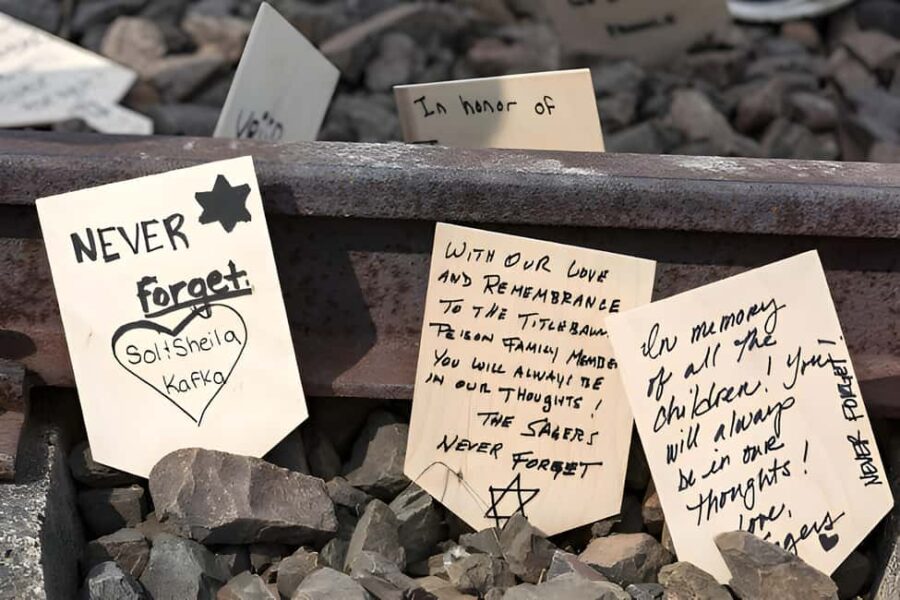 In honor of
NEVER
Forget.
Sol + Sheila
Kafka
WITH OUR LOVE
AND REMEMBRANCE
TO THE TITLEBAUM
PEISON FAMILY MEMBE
YOU WILL ALWAYS BE
IN OUR THOUGHTS!
THE SAGERS
NEVER FORGET
In memory
of all the
children! You
will always
be in our
thoughts!
Love,
NEVER FORGET!